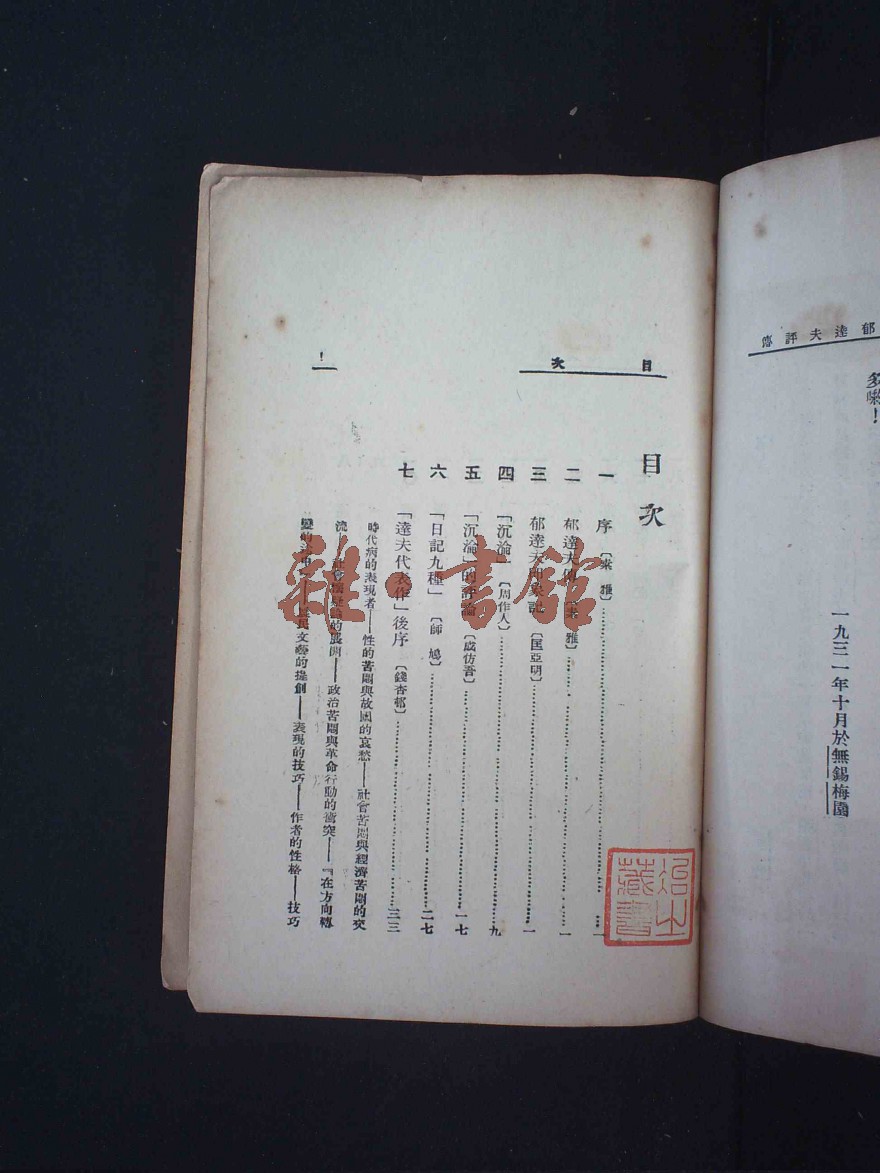 郁達夫評傳
多嘞！
一九三一年十月於無錫梅園
目次
一
目次
一 序〔素雅〕
二 郁達夫傳〔素雅〕 一
三 郁達夫印象記〔匡亞明〕 一
四 「沉淪」〔周作人〕 九
五 「沉淪」的評論〔成仿吾〕 一七
六 「日記九種」〔師鳩〕 二七
七 「達夫代表作」後序〔錢杏邨〕 三三
時代病的表現者——性的苦悶與故國的哀愁——社會苦悶與經濟苦悶的交
流——社會 的展開——政治苦悶與革命行動的衝突——『在方向轉
變的 民文藝的提創——表現的技巧——作者的性格——技巧
雜·書館
治之
藏書